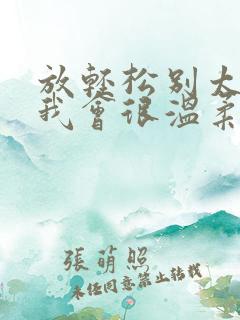 放輕松别太
我會很溫柔
張萌照
未经同意禁止转载